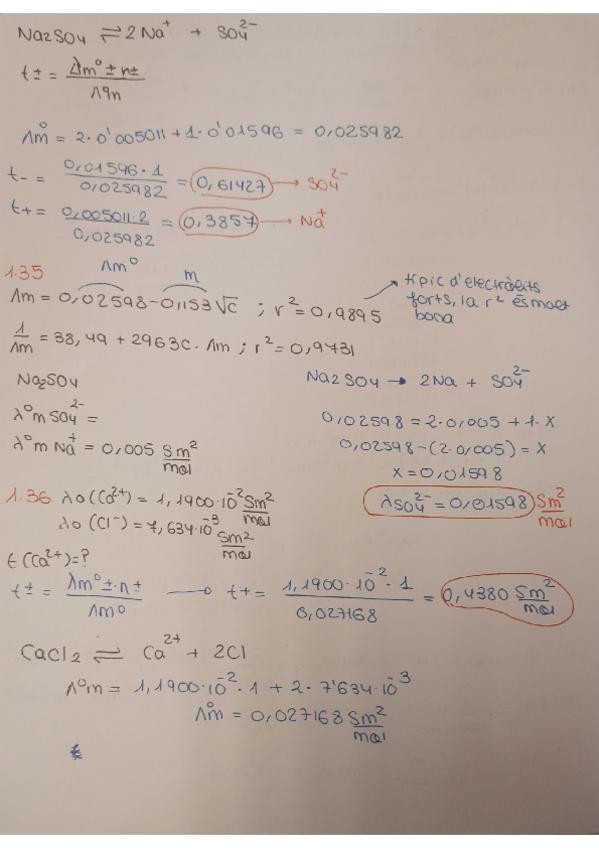 Na2SO4 ⇌ 2Na⁺ + SO4²⁻
t± = λm°± n± / Λ°m
Λm° = 2·0'005011 + 1·0'01596 = 0,025982
t- = 0,01596·1 / 0,025982 = 0,61427 → SO4²⁻
t+ = 0,005011·2 / 0,025982 = 0,3857 → Na⁺
1.35 Λm° m
Λm = 0,02598 - 0,1153√c ; r² = 0,9895
típic d'electròlits
forts, la r² és molt
bona
1/Λm = 38,49 + 2963c·Λm ; r² = 0,9731
Na2SO4
λ°m SO4²⁻ =
λ°m Na⁺ = 0,005 Sm²/mol
Na2SO4 → 2Na + SO4²⁻
0,02598 = 2·0,005 + 1·x
0,02598 - (2·0,005) = x
x = 0,01598
λSO4²⁻ = 0,01598 Sm²/mol
1.36 λo(Ca²⁺) = 1,1900·10⁻² Sm²/mol
λo(Cl⁻) = 7,634·10⁻³ Sm²/mol
t(Ca²⁺) = ?
t± = λm°±·n± / Λm° → t+ = 1,1900·10⁻²·1 / 0,027168 = 0,4380 Sm²/mol
CaCl2 ⇌ Ca²⁺ + 2Cl
Λ°m = 1,1900·10⁻²·1 + 2·7'634·10⁻³
Λm° = 0,027168 Sm²/mol